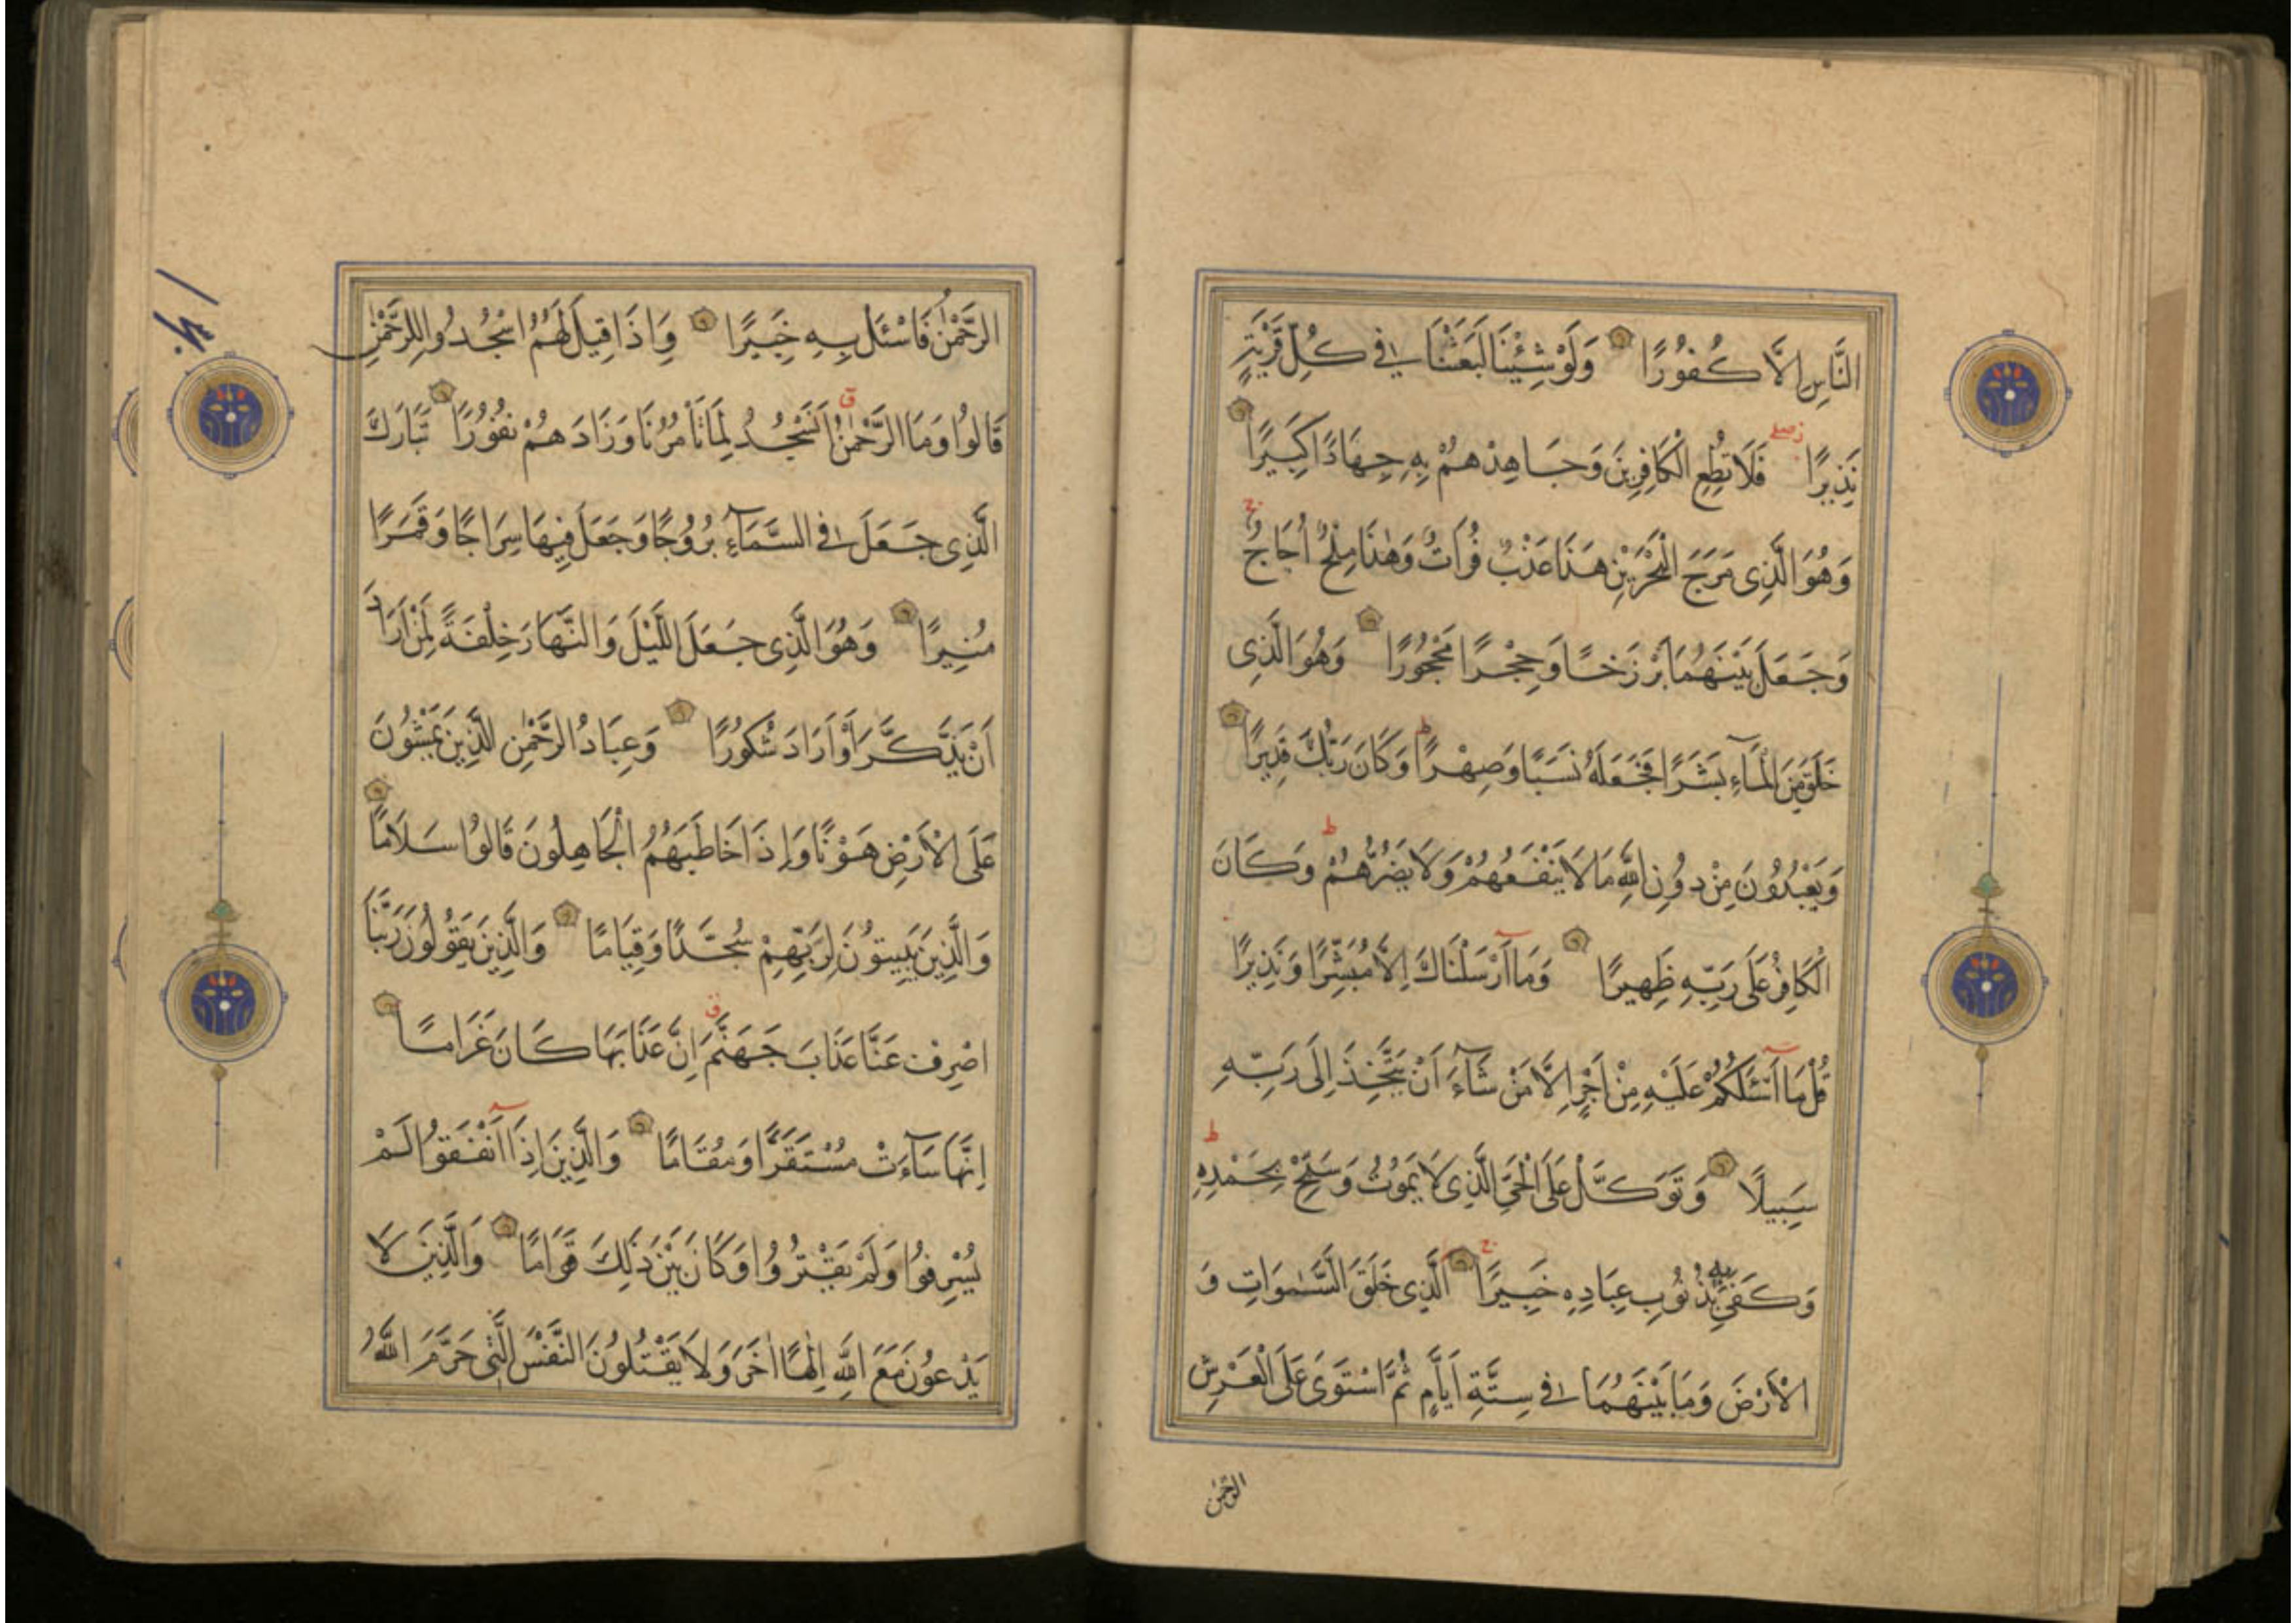 النَّاسِ اِلَّا كُفُورًا وَلَوْ شِئْنَا لَبَعَثْنَا فِي كُلِّ قَرْيَةٍ
نَذِيرًا فَلَا تُطِعِ الْكَافِرِينَ وَجَاهِدْهُمْ بِهِ جِهَادًا كَبِيرًا
وَهُوَ الَّذِي مَرَجَ الْبَحْرَيْنِ هَذَا عَذْبٌ فُرَاتٌ وَهٰذَا مِلْحٌ اُجَاجٌ
وَجَعَلَ بَيْنَهُمَا بَرْزَخًا وَحِجْرًا مَحْجُورًا وَهُوَ الَّذِي
خَلَقَ مِنَ الْمَآءِ بَشَرًا فَجَعَلَهُ نَسَبًا وَصِهْرًا وَكَانَ رَبُّكَ قَدِيرًا
وَيَعْبُدُونَ مِنْ دُونِ اللّٰهِ مَا لَا يَنْفَعُهُمْ وَلَا يَضُرُّهُمْ وَكَانَ
الْكَافِرُ عَلَى رَبِّهِ ظَهِيرًا وَمَا اَرْسَلْنَاكَ اِلَّا مُبَشِّرًا وَنَذِيرًا
قُلْ مَا اَسْئَلُكُمْ عَلَيْهِ مِنْ اَجْرٍ اِلَّا مَنْ شَآءَ اَنْ يَتَّخِذَ اِلَى رَبِّهِ
سَبِيلًا وَتَوَكَّلْ عَلَى الْحَيِّ الَّذِي لَا يَمُوتُ وَسَبِّحْ بِحَمْدِهِ
وَكَفَى بِهِ بِذُنُوبِ عِبَادِهِ خَبِيرًا الَّذِي خَلَقَ السَّمٰوَاتِ وَ
الْاَرْضَ وَمَا بَيْنَهُمَا فِي سِتَّةِ اَيَّامٍ ثُمَّ اسْتَوَى عَلَى الْعَرْشِ
الرَّحْمٰن
الرَّحْمٰنُ فَاسْئَلْ بِهِ خَبِيرًا وَاِذَا قِيلَ لَهُمُ اسْجُدُوا لِلرَّحْمٰنِ
قَالُوا وَمَا الرَّحْمٰنُ اَنَسْجُدُ لِمَا تَأْمُرُنَا وَزَادَهُمْ نُفُورًا تَبَارَكَ
الَّذِي جَعَلَ فِي السَّمَآءِ بُرُوجًا وَجَعَلَ فِيهَا سِرَاجًا وَقَمَرًا
مُنِيرًا وَهُوَ الَّذِي جَعَلَ اللَّيْلَ وَالنَّهَارَ خِلْفَةً لِمَنْ اَرَادَ
اَنْ يَذَّكَّرَ اَوْ اَرَادَ شُكُورًا وَعِبَادُ الرَّحْمٰنِ الَّذِينَ يَمْشُونَ
عَلَى الْاَرْضِ هَوْنًا وَاِذَا خَاطَبَهُمُ الْجَاهِلُونَ قَالُوا سَلَامًا
وَالَّذِينَ يَبِيتُونَ لِرَبِّهِمْ سُجَّدًا وَقِيَامًا وَالَّذِينَ يَقُولُونَ رَبَّنَا
اصْرِفْ عَنَّا عَذَابَ جَهَنَّمَ اِنَّ عَذَابَهَا كَانَ غَرَامًا
اِنَّهَا سَآءَتْ مُسْتَقَرًّا وَمُقَامًا وَالَّذِينَ اِذَا اَنْفَقُوا لَمْ
يُسْرِفُوا وَلَمْ يَقْتُرُوا وَكَانَ بَيْنَ ذٰلِكَ قَوَامًا وَالَّذِينَ لَا
يَدْعُونَ مَعَ اللّٰهِ اِلٰهًا اٰخَرَ وَلَا يَقْتُلُونَ النَّفْسَ الَّتِي حَرَّمَ اللّٰهُ